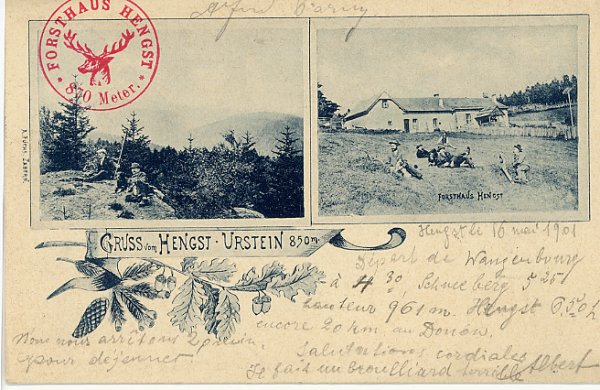 FORSTHAUS HENGST
* 870 Meter. *
FORSTHAUS HENGST
GRUSS vom HENGST - URSTEIN 850m
Hengst le 16 mai 1901
Départ de Wangenbourg
à 4 30, Schneeberg 5 25
hauteur 961 m. Hengst
encore 20 km au Donon.
Nous nous arrêtons
pour déjeuner.
Salutations cordiales
Il fait un brouillard terrible
Albert